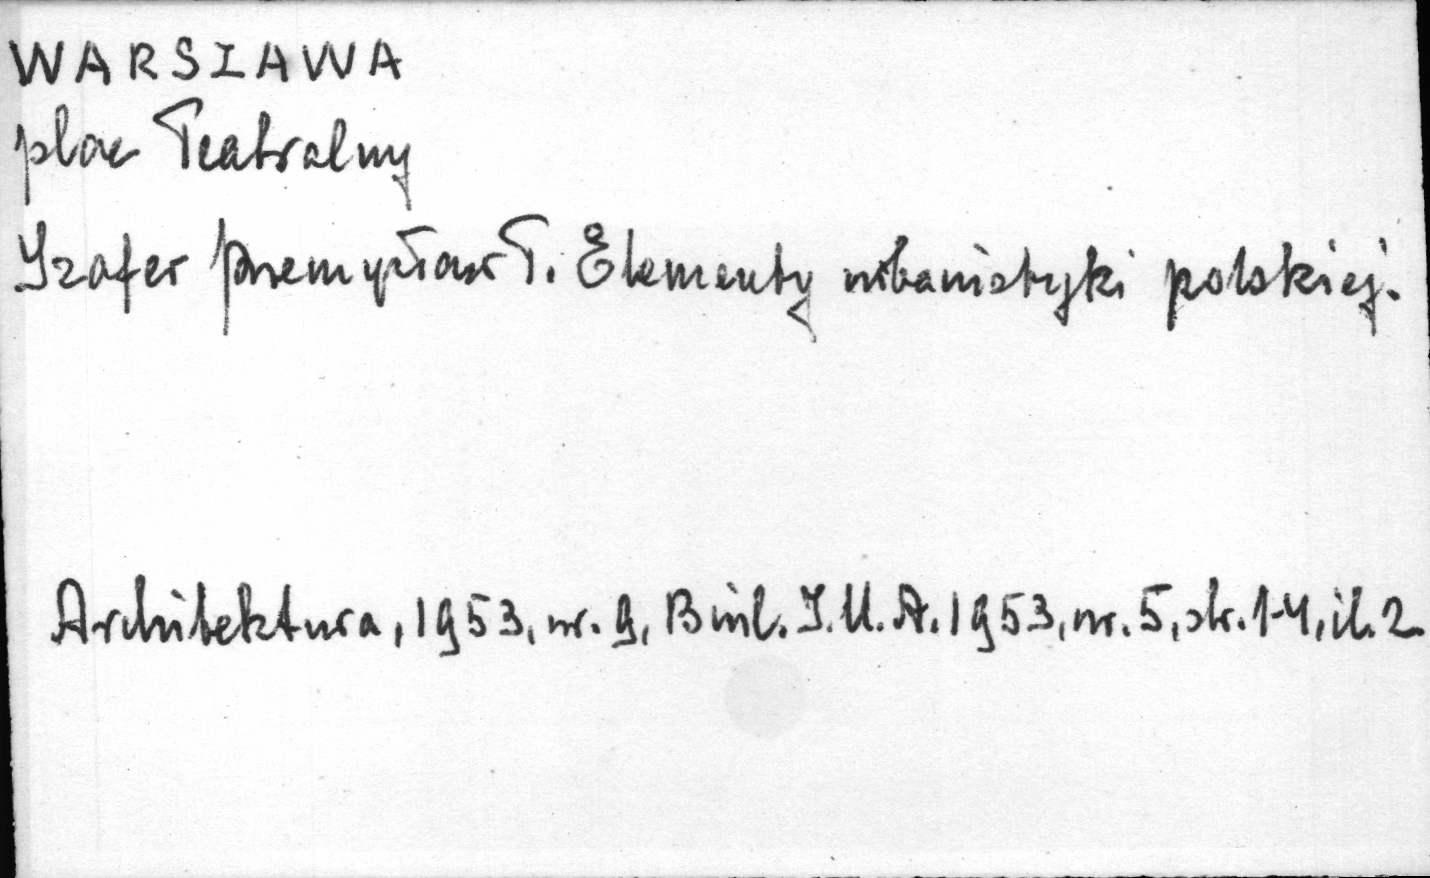 WARSZAWA
plac Teatralny
Szafer Przemysław T. Elementy urbanistyki polskiej.
Architektura, 1953, nr. 9, Biul. I.U.A. 1953, nr. 5, str. 1-4, il. 2